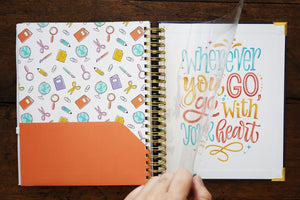 Wherever
you GO,
go with
your heart.